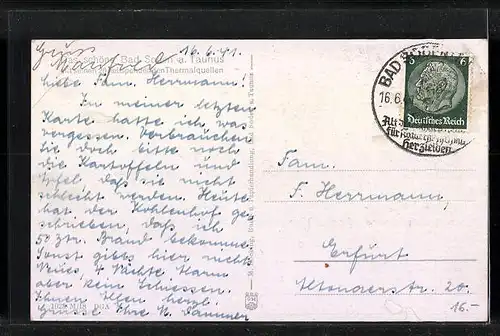 Gruss
Manfred
16.6.41.
Das schöne Bad Soden a. Taunus
Thermalquellen
Liebe Fam. Herrmann!
In meiner letzten
Karte hatte ich was
vergessen. Verbrauchen
Sie doch bitte noch
die Kartoffeln und
Äpfel, daß sie nicht
schlecht werden. Heute
hat der Kohlenhof ge-
schrieben, daß ich
50 Ztr. Brand bekomme.
Sonst gibts hier nicht
Neues, 4 Nächte Alarm
aber kein Schiessen.
Ihnen Allen herzl.
Grüsse Ihre
BAD SODEN
16.6.
6
Deutsches Reich
Herzleiden
Fam.
F. Herrmann,
Erfurt
20.
16.-